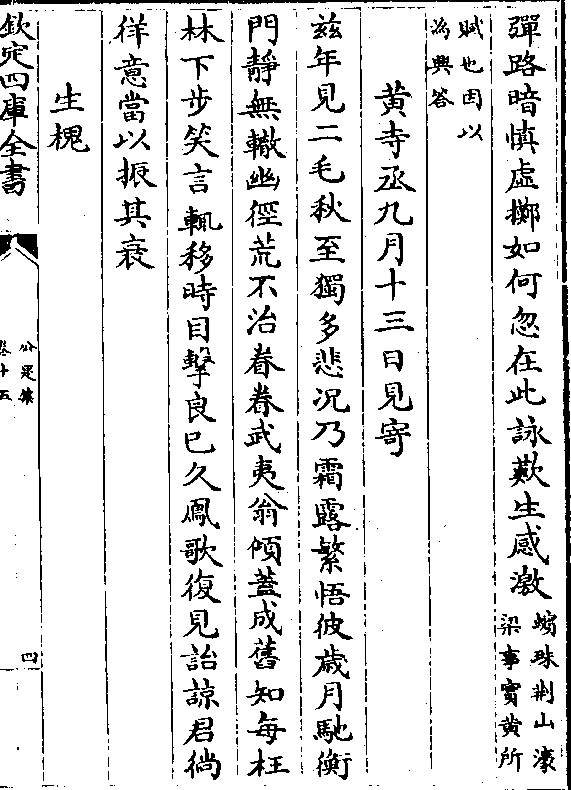 彈路暗慎虛擲如何忽在此詠歎生感激
蠙珠荆山濠
梁事實黃所
賦也因以
為興答
黄寺丞九月十三日見寄
兹年見二毛秋至獨多悲况乃霜露繁悟彼歲月馳衡
門静無轍幽徑荒不治眷眷武夷翁傾蓋成舊知每枉
林下步笑言輒移時目擊良已久鳳歌復見詒諒君徜
徉意當以振其衰
生槐
欽定四庫全書
公是集
卷十五
四